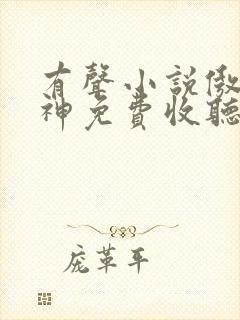 有聲小説傲
神免費收聽
庞革平